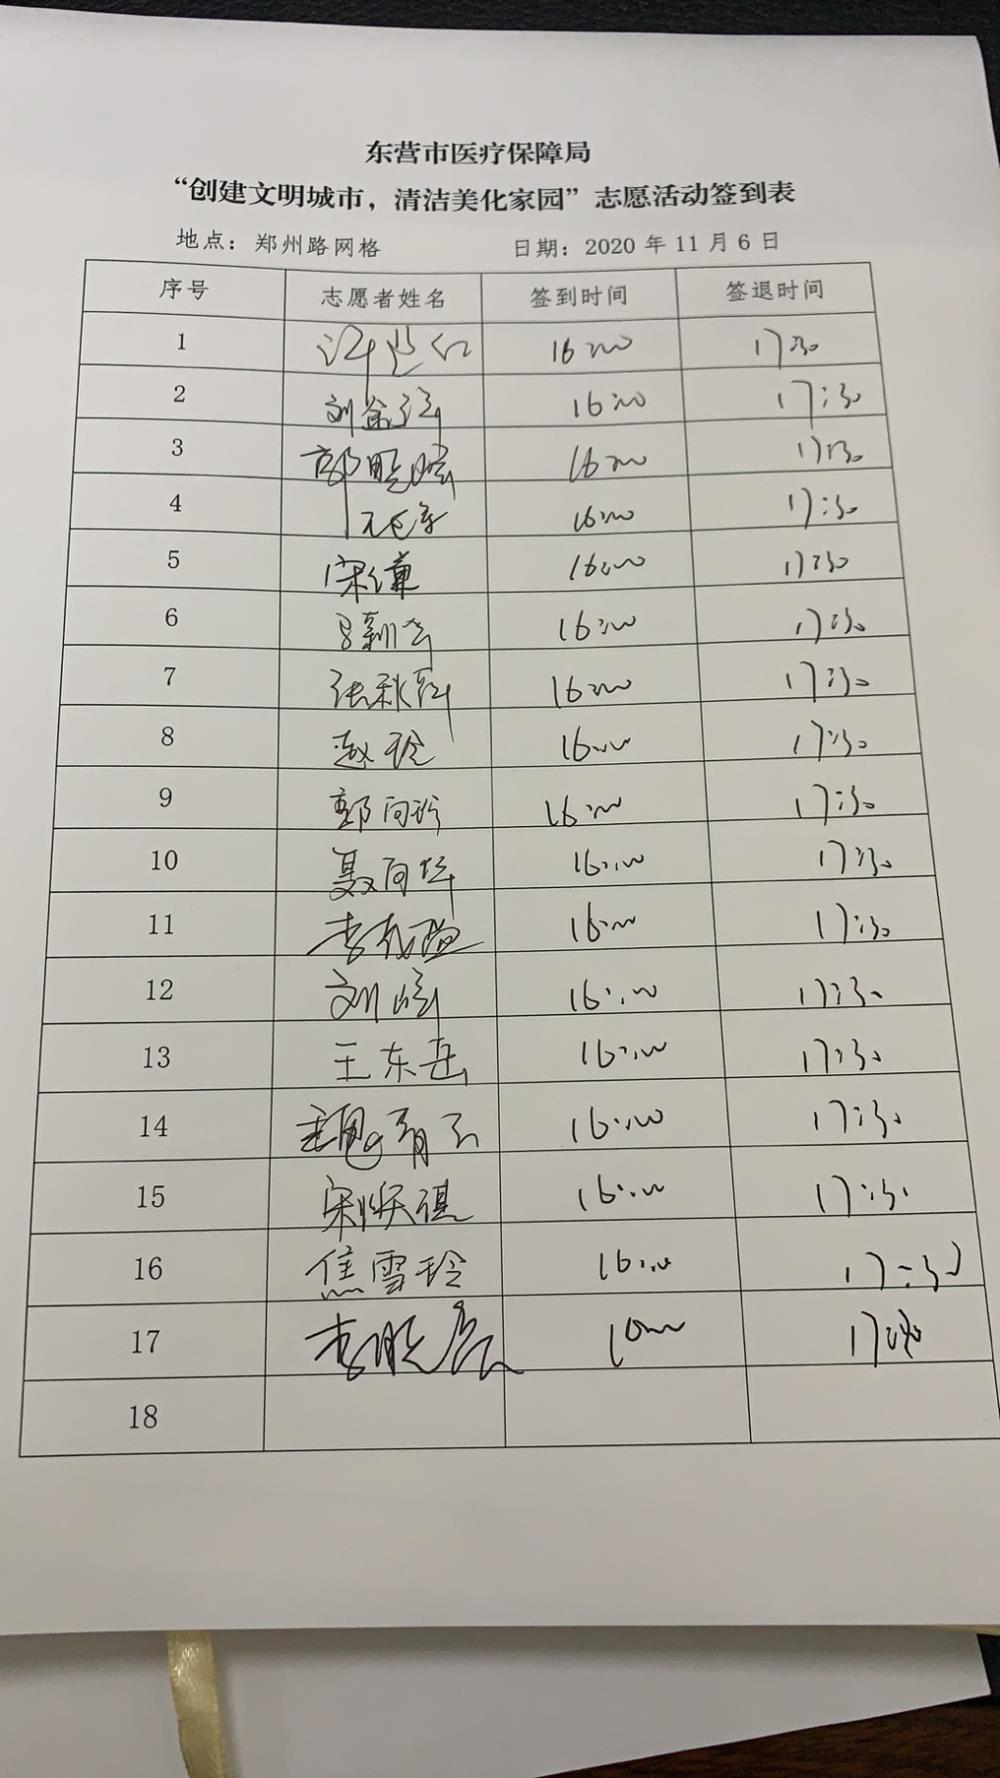 东营市医疗保障局
“创建文明城市，清洁美化家园”志愿活动签到表
地点：郑州路网格 日期：2020 年 11 月 6 日
序号 志愿者姓名 签到时间 签退时间
1 16:00 17:30
2 16:00 17:30
3 16:00 17:30
4 16:00 17:30
5 16:00 17:30
6 16:00 17:30
7 张秋萍 16:00 17:30
8 赵玲 16:00 17:30
9 郭向珍 16:00 17:30
10 聂向坤 16:00 17:30
11 16:00 17:30
12 16:00 17:30
13 王东岳 16:00 17:30
14 16:00 17:30
15 宋焕祺 16:00 17:30
16 焦雪玲 16:00 17:30
17
18